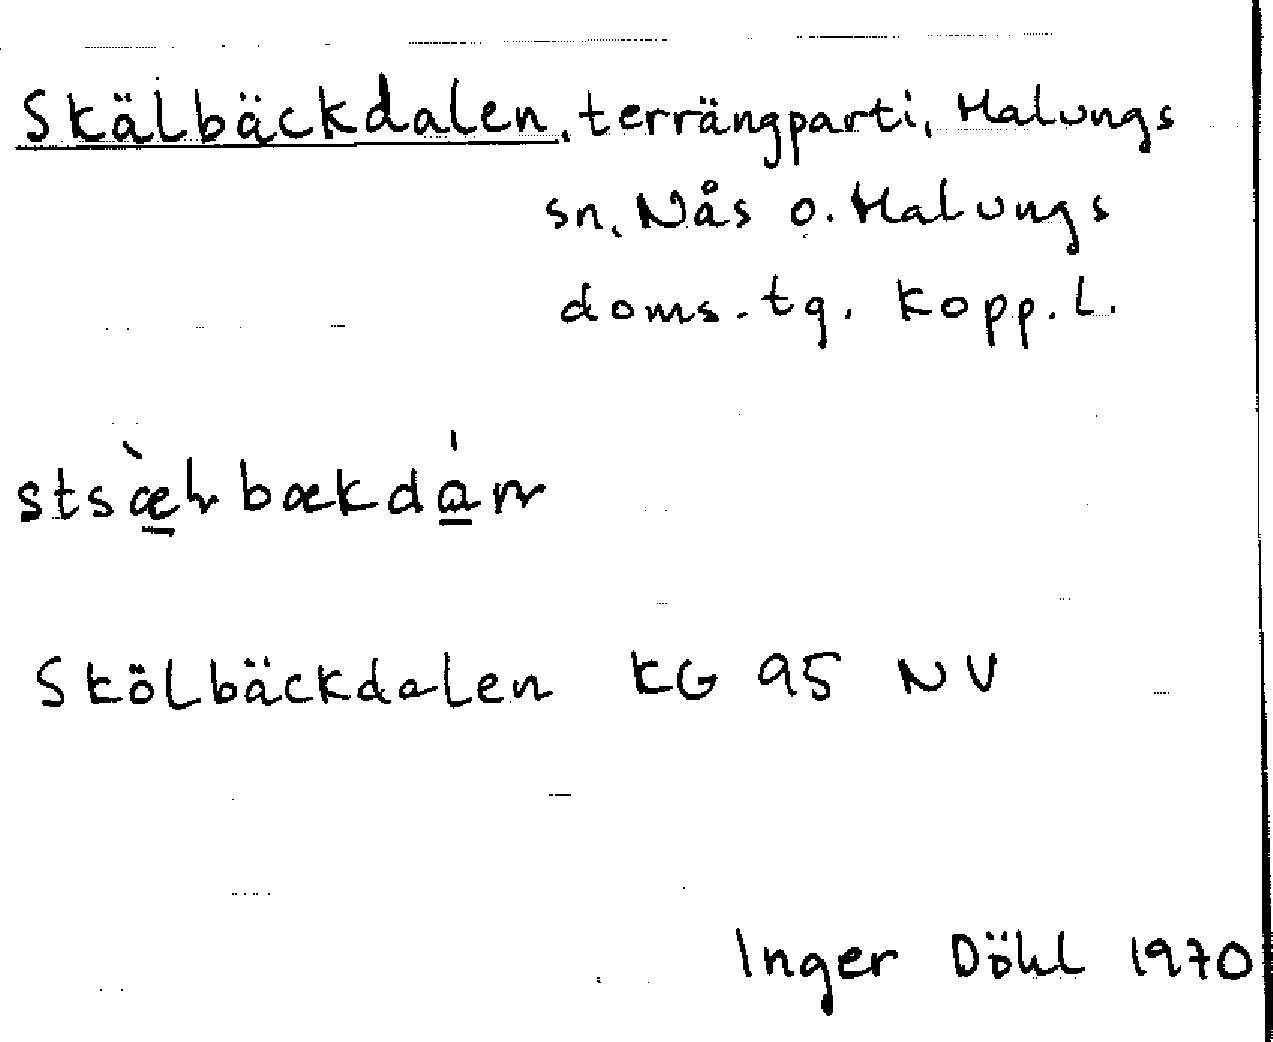 Skälbäckdalen, terrängparti, Malungs
sn, Nås o. Malungs
doms.tg. Kopp. L.
stsæ̀lbækdánn
Skölbäckdalen KG 95 NV
Inger Döhl 1970